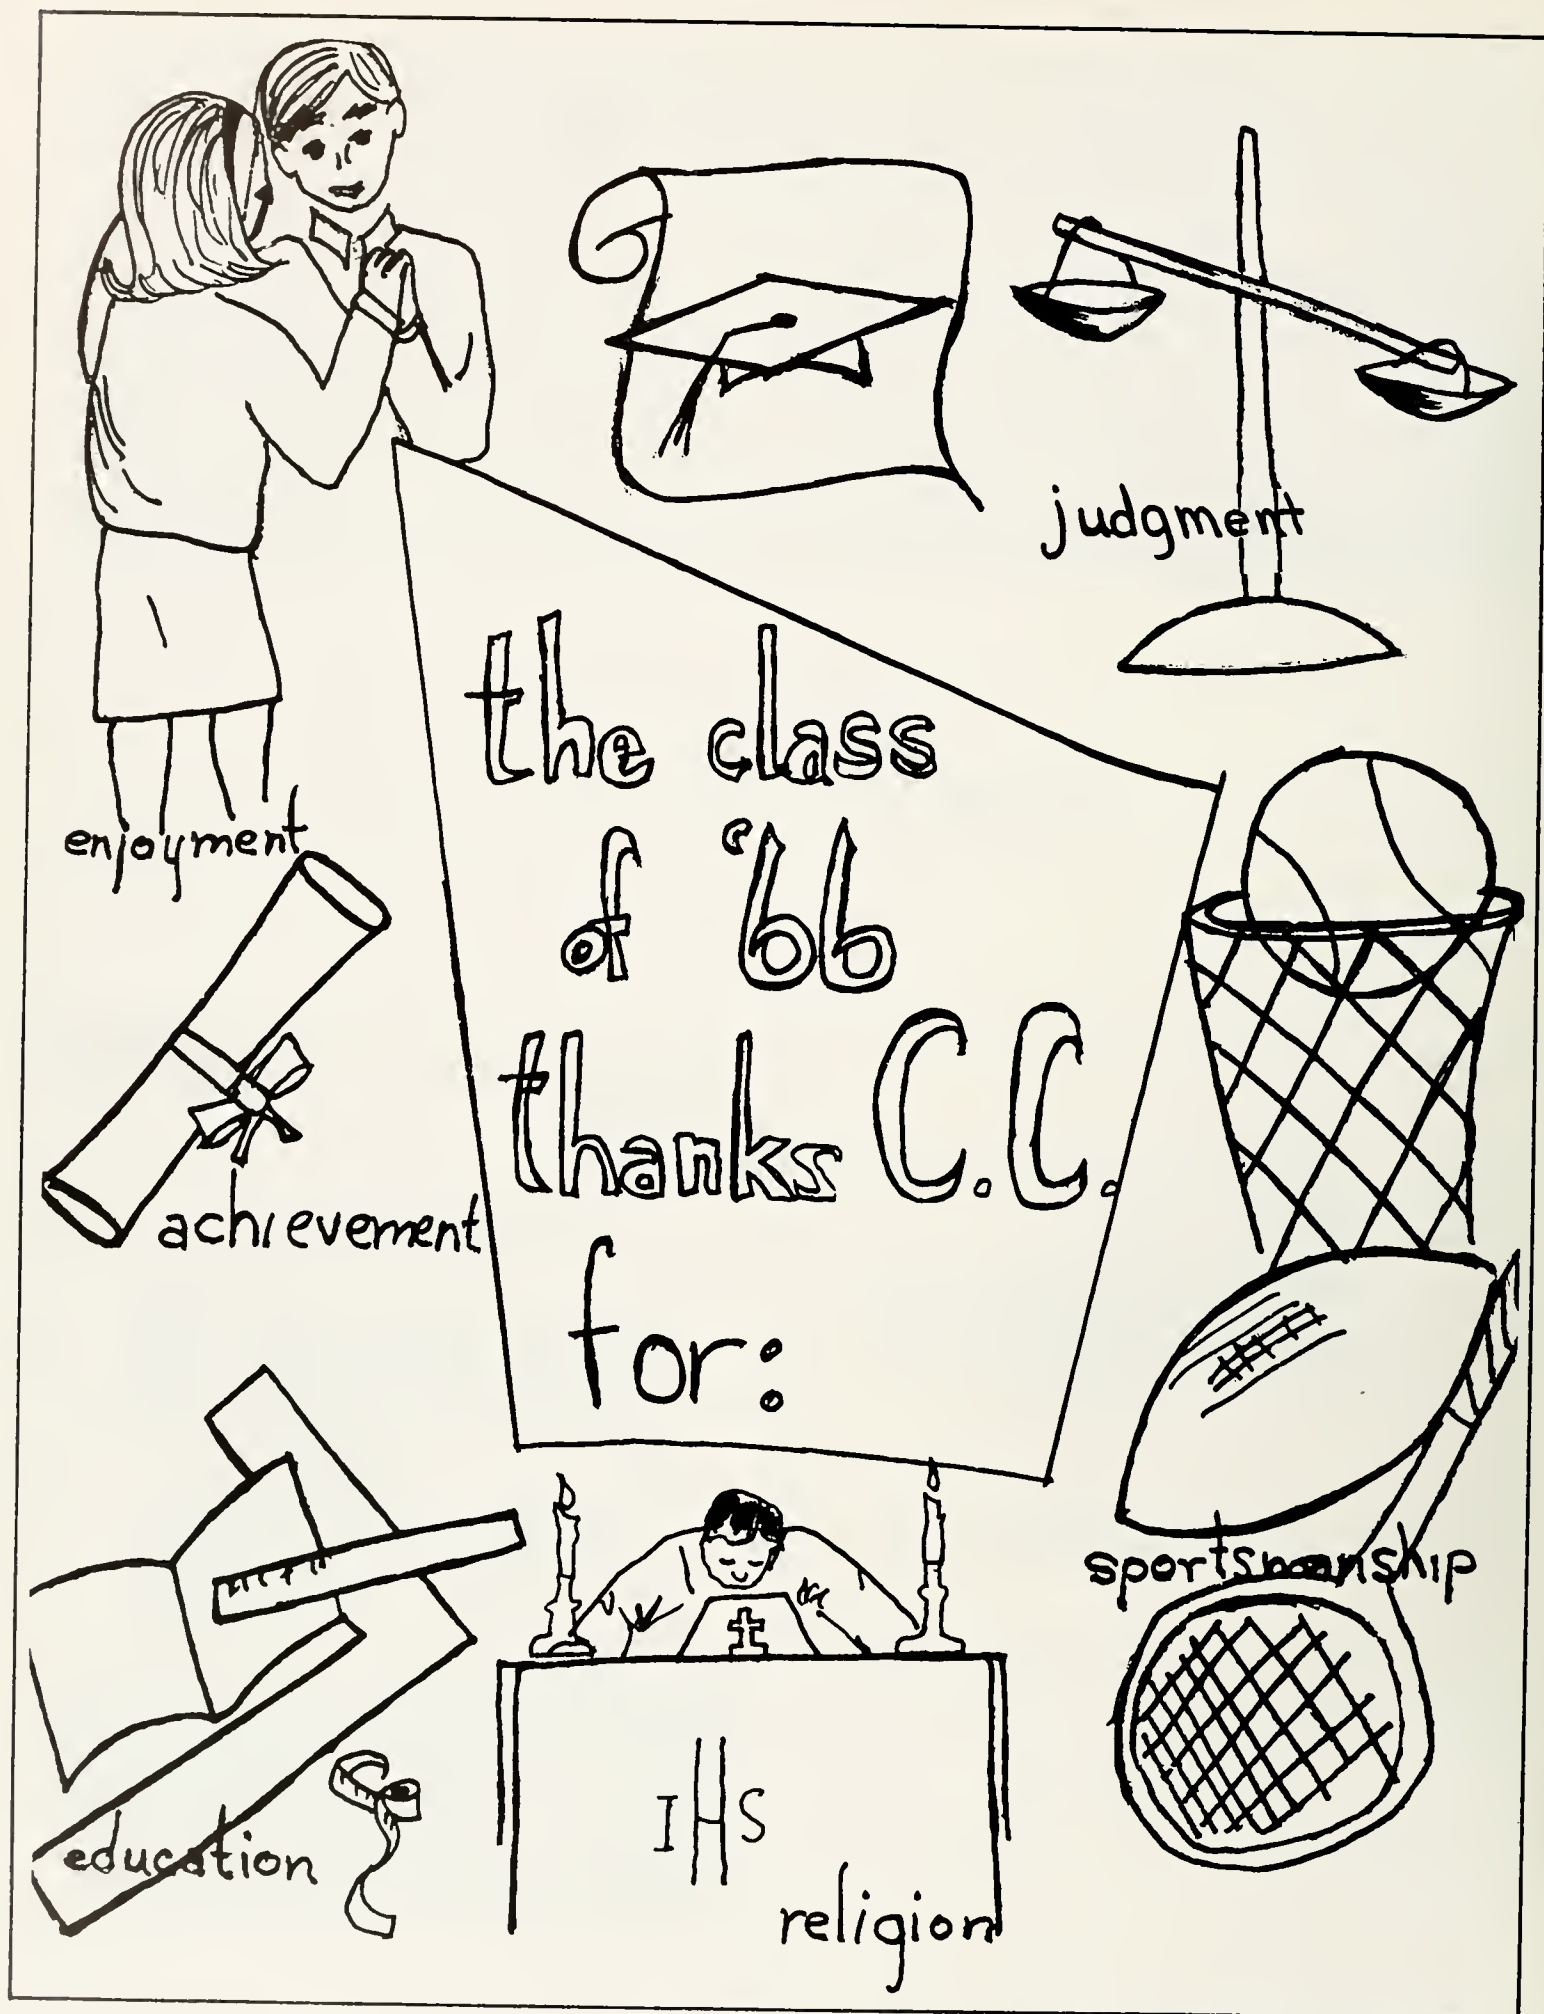 judgment
the class
of '66
thanks C.C.
for:
enjoyment
achievement
sportsmanship
education
IHS
religion